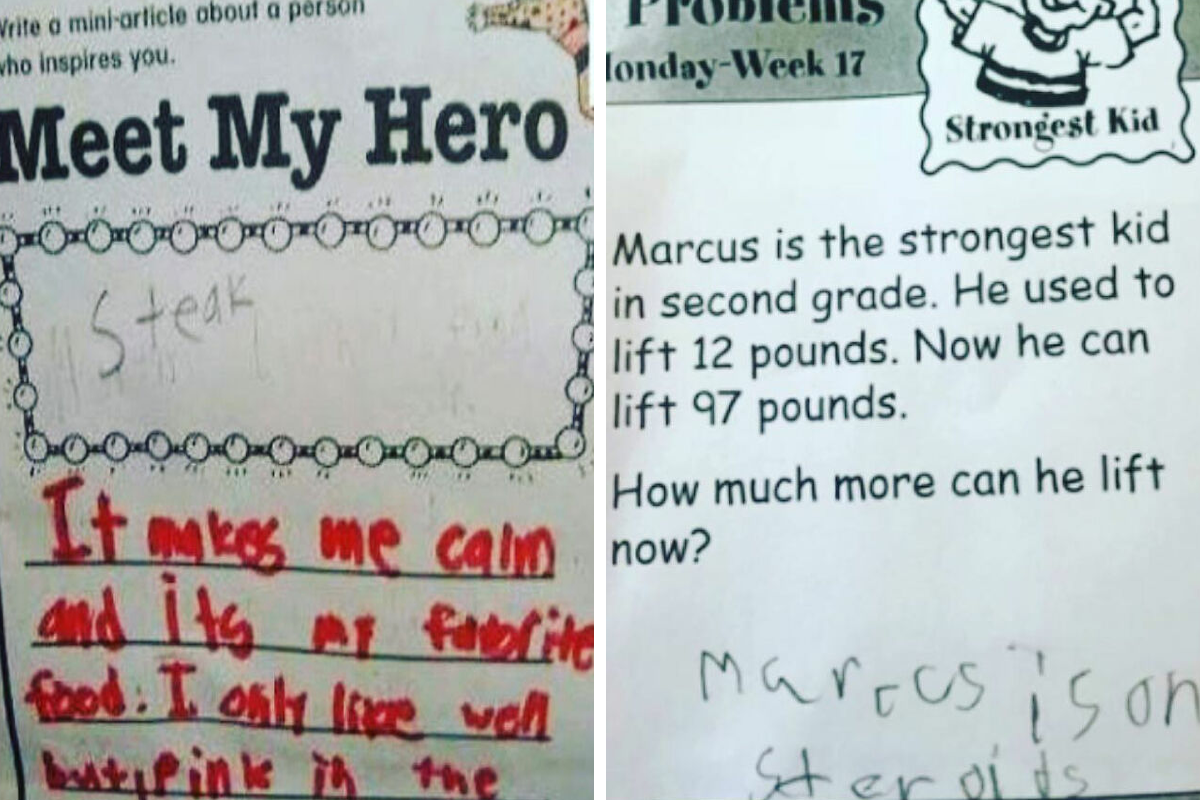 Write a mini-article about a person
who inspires you.
Meet My Hero
Steak
It makes me calm
and its my faborite
food. I only like well
but pink in the
Problems
Monday-Week 17
Strongest Kid
Marcus is the strongest kid
in second grade. He used to
lift 12 pounds. Now he can
lift 97 pounds.
How much more can he lift
now?
Marccus is on
steroids